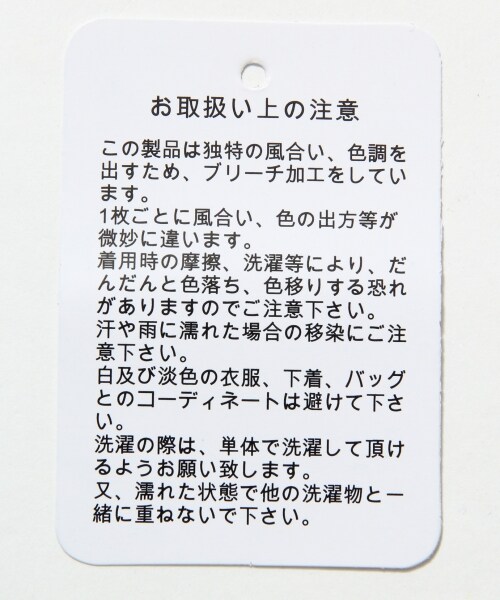 お取扱い上の注意
この製品は独特の風合い、色調を
出すため、ブリーチ加工をしてい
ます。
1枚ごとに風合い、色の出方等が
微妙に違います。
着用時の摩擦、洗濯等により、だ
んだんと色落ち、色移りする恐れ
がありますのでご注意下さい。
汗や雨に濡れた場合の移染にご注
意下さい。
白及び淡色の衣服、下着、バッグ
とのコーディネートは避けて下さ
い。
洗濯の際は、単体で洗濯して頂け
るようお願い致します。
又、濡れた状態で他の洗濯物と一
緒に重ねないで下さい。